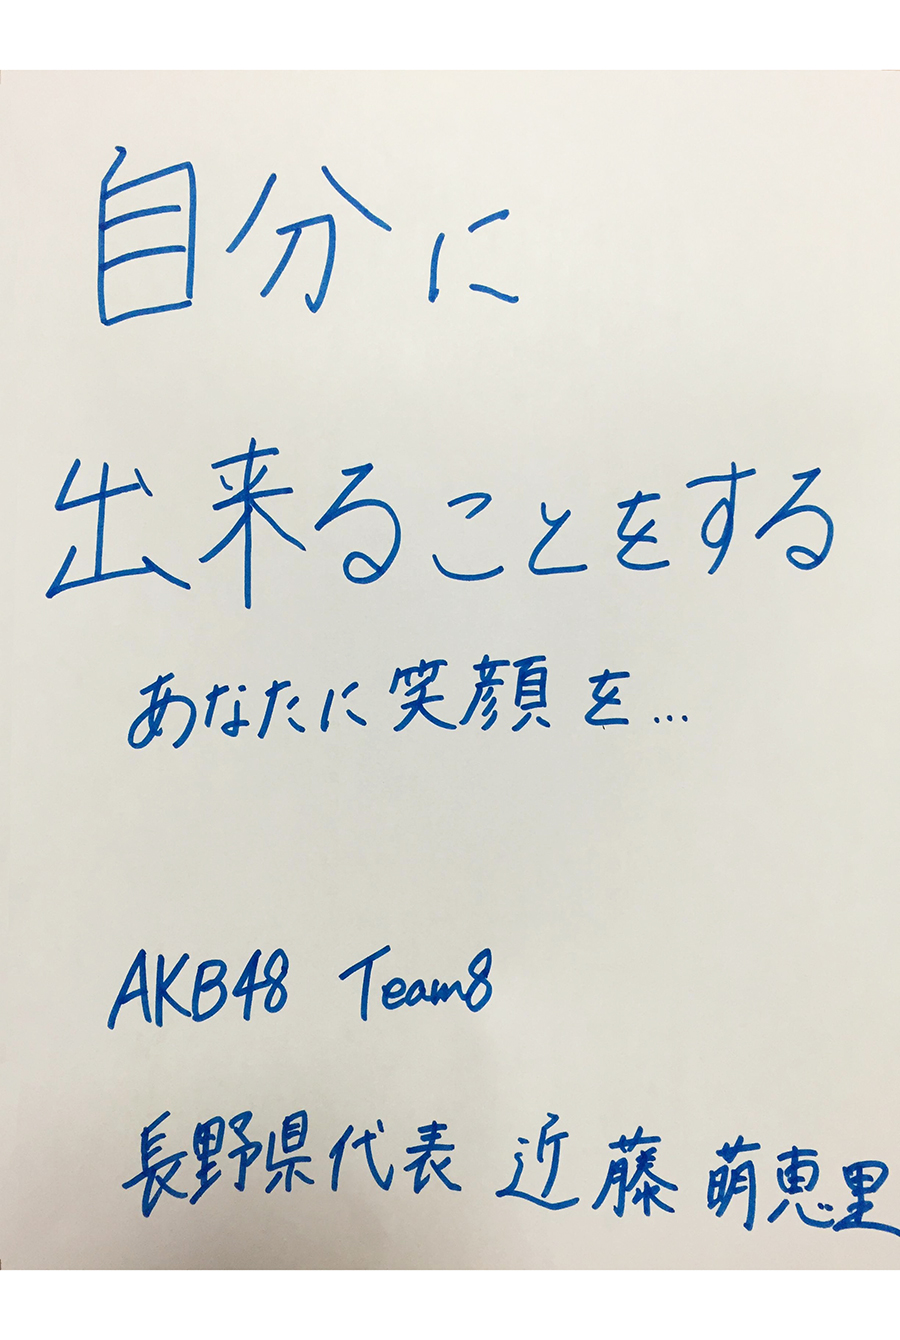 自分に
出来ることをする
あなたに笑顔を...
AKB48 Team8
長野県代表 近藤 萌恵里